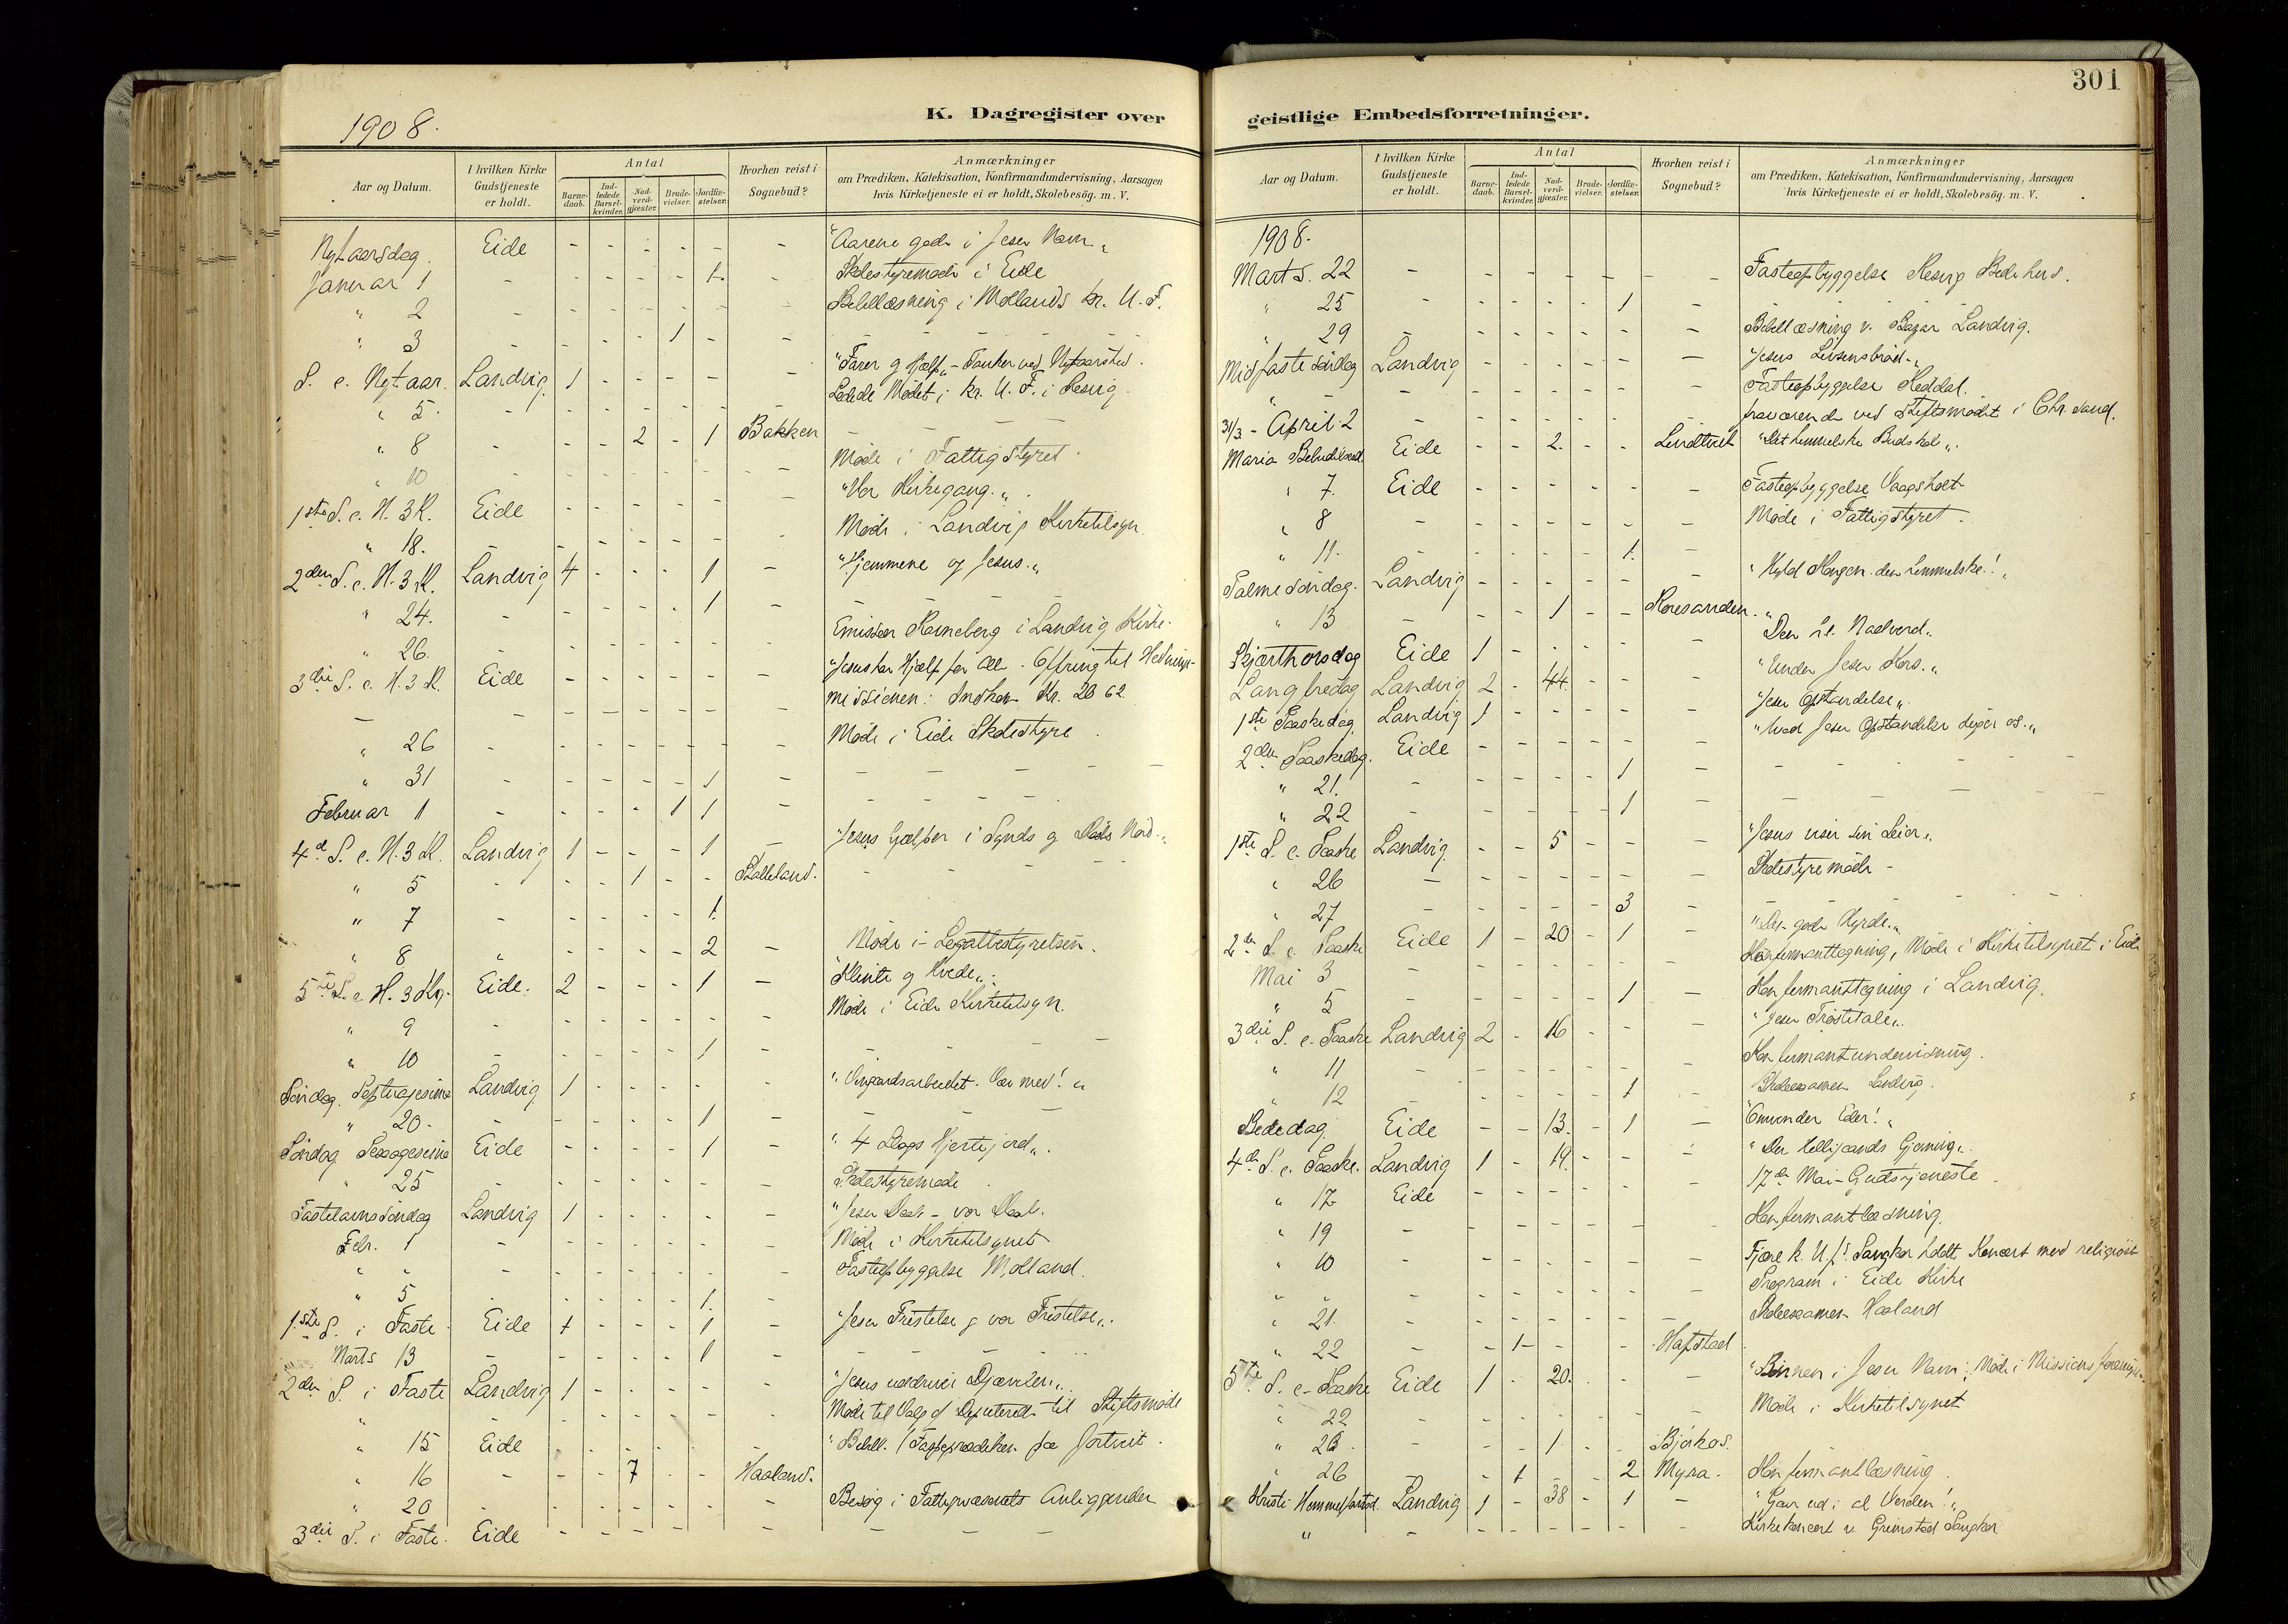 301
1908.
K. Dagregister over geistlige Embedsforretninger.
Aar og Datum.
I hvilken Kirke Gudstjeneste er holdt.
Antal
Barne-daab.
Ind-ledede Barsel-kvinder.
Nad-verd-gjæster.
Brude-vielser.
Jordfæ-stelser.
Hvorhen reist i Sognebud?
Anmærkninger
om Prædiken, Katekisation, Konfirmandundervisning, Aarsagen
hvis Kirketjeneste ei er holdt, Skolebesög. m. V.
Nytaarsdag. Eide - - - - - -
Januar 1 - - - - - 1. - Skolestyremøde i Eide
" 2 - Bibellæsning i Mollands kr. U. F.
" 3 - - - - 1 - -
S. e. Nytaar. Landvig 1 - - - - -
" 5. - Ledede Mødet i kr. U. F. i
" 8 - - - 2 - 1 Bakken -
" 10 - Møde i Fattigstyret.
1ste S. e. H. 3 K. Eide - - - - - - "Vor Kirkegang."
" 18. - Møde i Landvig Kirketilsyn
2den S. e. H. 3 K. Landvig 4 - - - 1 - "Hjemmene og Jesus."
" 24. - - - - - 1 - -
" 26. - Emissær i Landvig Kirke.
3die S. e. H. 3 K. Eide - - - - - - "Jesus har Hjælp for alle. Offring til Hednings-
missionen: Indkom Kr. 20 62.
" 26 - Møde i Eide Skolestyre.
" 31 - - - - - 1 - -
Februar 1 - - - - 1 1 - -
4d S. e. H. 3 K. Landvig 1 - - - 1 - "Jesus hjælper i Synds og Døds Nød."
" 5 - - - 1 - - -
" 7 - - - - - 1. -
" 8 " - - - - 2 - Møde i Legatbestyrelsen.
5te S. e. H. 3 Kg. Eide. 2 - - - 1 - "Klinte og Hvede."
" 9 - Møde i Eide Kirketilsyn.
" 10 - - - - - 1 - -
Søndag Septuagesima Landvig 1 - - - - - "Vingaardsarbeidet. Vær med!"
" 20. - - - - - 1 - -
Søndag Sexagesima Eide - - - - 1 - "4 Slags Hjertejord".
" 25 - Skolestyremøde.
Fastelavnssöndag Landvig 1 - - - - - "Jesu Daab - vor Daab.
Febr. 1 - Møde i Kirketilsynet
" " - Fasteopbyggelse Molland.
" 5 - - - - - 1. -
1ste S. i Faste Eide 1 - - - 1 - "Jesu Fristelse og vor Fristelse".
Marts 13 - - - - - 1 - -
2den S. i Faste Landvig 1 - - - - - "Jesus uddriver Djævelen".
Møde til Valg af Deputerede til Stiftsmøde
" 15 Eide - - - - - -
" 16 - - - 7 - - Haaland.
" 20 - Besøg i Fattigvæsenets Anliggender
3die S. i Faste. Eide - - - - - -
1908.
Marts. 22 - Fasteopbyggelse Bedehus.
" 25 - - - - - 1 -
" 29 - Bibellæsning v. Bazar Landvig.
Midfastesöndag Landvig - - - - - - "Jesus Livsens brød."
" - Fasteopbyggelse Reddal.
31/3 - April 2 - fraværende ved Stiftsmødet i Chr.sand.
Maria Bebudelsesd. Eide - - 2. - - "Det himmelske Budskab".
" 7. Eide - - - - - - Fasteopbyggelse Vaagsholt
" 8 - Møde i Fattigstyret.
" 11. - - - - - 1. -
Palmesöndag. Landvig - - - - - - "Hyld Kongen den himmelske!"
" 13 - - - 1 - -
Skjærthorsdag Eide 1 - - - - - "Den hl. Nadverd".
Langfredag Landvig 2 - 44. - - - "Under Jesu Kors."
1ste Paaskedag. Landvig 1 - - - - - "Jesu Opstandelse".
2den Paaskedag. Eide - - - - - - "Hvad Jesu Opstandelse siger os."
" 21. - - - - - 1 - -
" 22 - - - - - 1 - -
1ste S. e. Paaske Landvig. - - 5 - - - "Jesus viser sin Seier".
" 26 - Skolestyremøde -
" 27 - - - - - 3 - -
2den S. e. Paaske Eide 1 - 20 - 1 - "Den gode Hyrde".
Mai 3 - Konfirmanttegning, Møde i Kirketilsynet i Eide
" 5 - - - - - 1 - Konfirmanttegning i Landvig.
3die S. e. Paaske Landvig 2 - 16 - - - "Jesu Trøstetale".
" 11 - Konfirmantundervisning.
" 12 - - - - - 1 - Skoleexamen Landvig.
Bededag. Eide - - 13. - 1 - "Omvender Eder!"
4de S. e. Paaske. Landvig 1 - 19. - - - "Den Helligaands Gjerning".
" 17. Eide - 17de Mai-Gudstjeneste.
" 19 - Konfirmantlæsning.
" 10 - Fjære k. U. f.s Sangkor holdt Koncert med religiøst
" " - Program i Eide Kirke
" 21. - Skoleexamen Haaland
" 22 - - 1 - - - Hafstad
5te S. e. Paaske Eide 1 - 20. - - - "Bønnen i Jesu Navn"; Møde i Missionsforeningen
" 22 - Møde i Kirketilsynet
" 23. - - - 1. - - Bjørkos.
" 26 - - 1 - - 2 Myra. Konfirmantlæsning.
Kristi Himmelfartsd. Landvig 1 - 38 - 1 - "Gaa ud i al Verden!"
" - Kirkekoncert v. Grimstad Sangkor